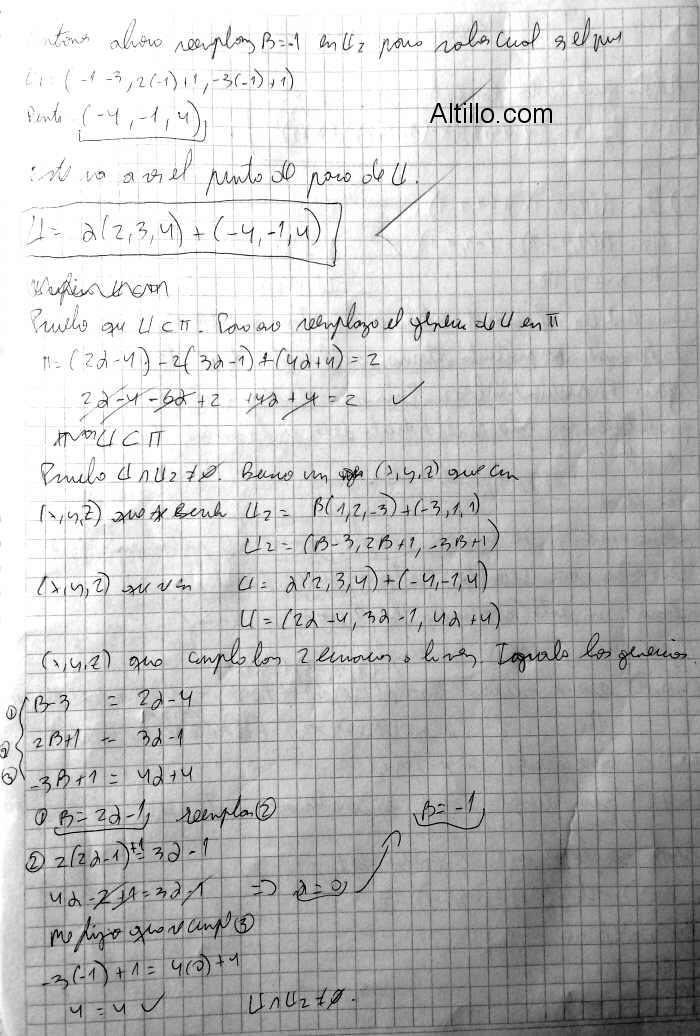 ahora reemplazo B=-1 en L2 para saber cual es el
L: (-1-3, 2(-1)+1, -3(-1)+1)
Altillo.com
Punto (-4, -1, 4)
este va a ser el punto de paso de L.
L= λ(2,3,4) + (-4,-1,4)
Pruebo que L⊂π. Para eso reemplazo el de L en π
π=(2λ-4)-2(3λ-1)+(4λ+4)=2
2λ-4-6λ+2 +4λ+4=2 ✓
L⊂π
Pruebo L∩L2≠∅. Busco un (x,y,z) que
(x,y,z) que L2= B(1,2,-3)+(-3,1,1)
L2=(B-3, 2B+1, -3B+1)
(x,y,z) que L= λ(2,3,4)+(-4,-1,4)
L=(2λ-4, 3λ-1, 4λ+4)
(x,y,z) que cumpla las 2 Igualo los genericos.
① B-3 = 2λ-4
② 2B+1 = 3λ-1
③ -3B+1 = 4λ+4
① B=2λ-1, reemplazo ② B=-1
② 2(2λ-1)+1=3λ-1
4λ-2+1=3λ-1 => λ=0
Me fijo que cumpla ③
-3(-1)+1=4(0)+4
4=4 ✓ L∩L2≠∅.